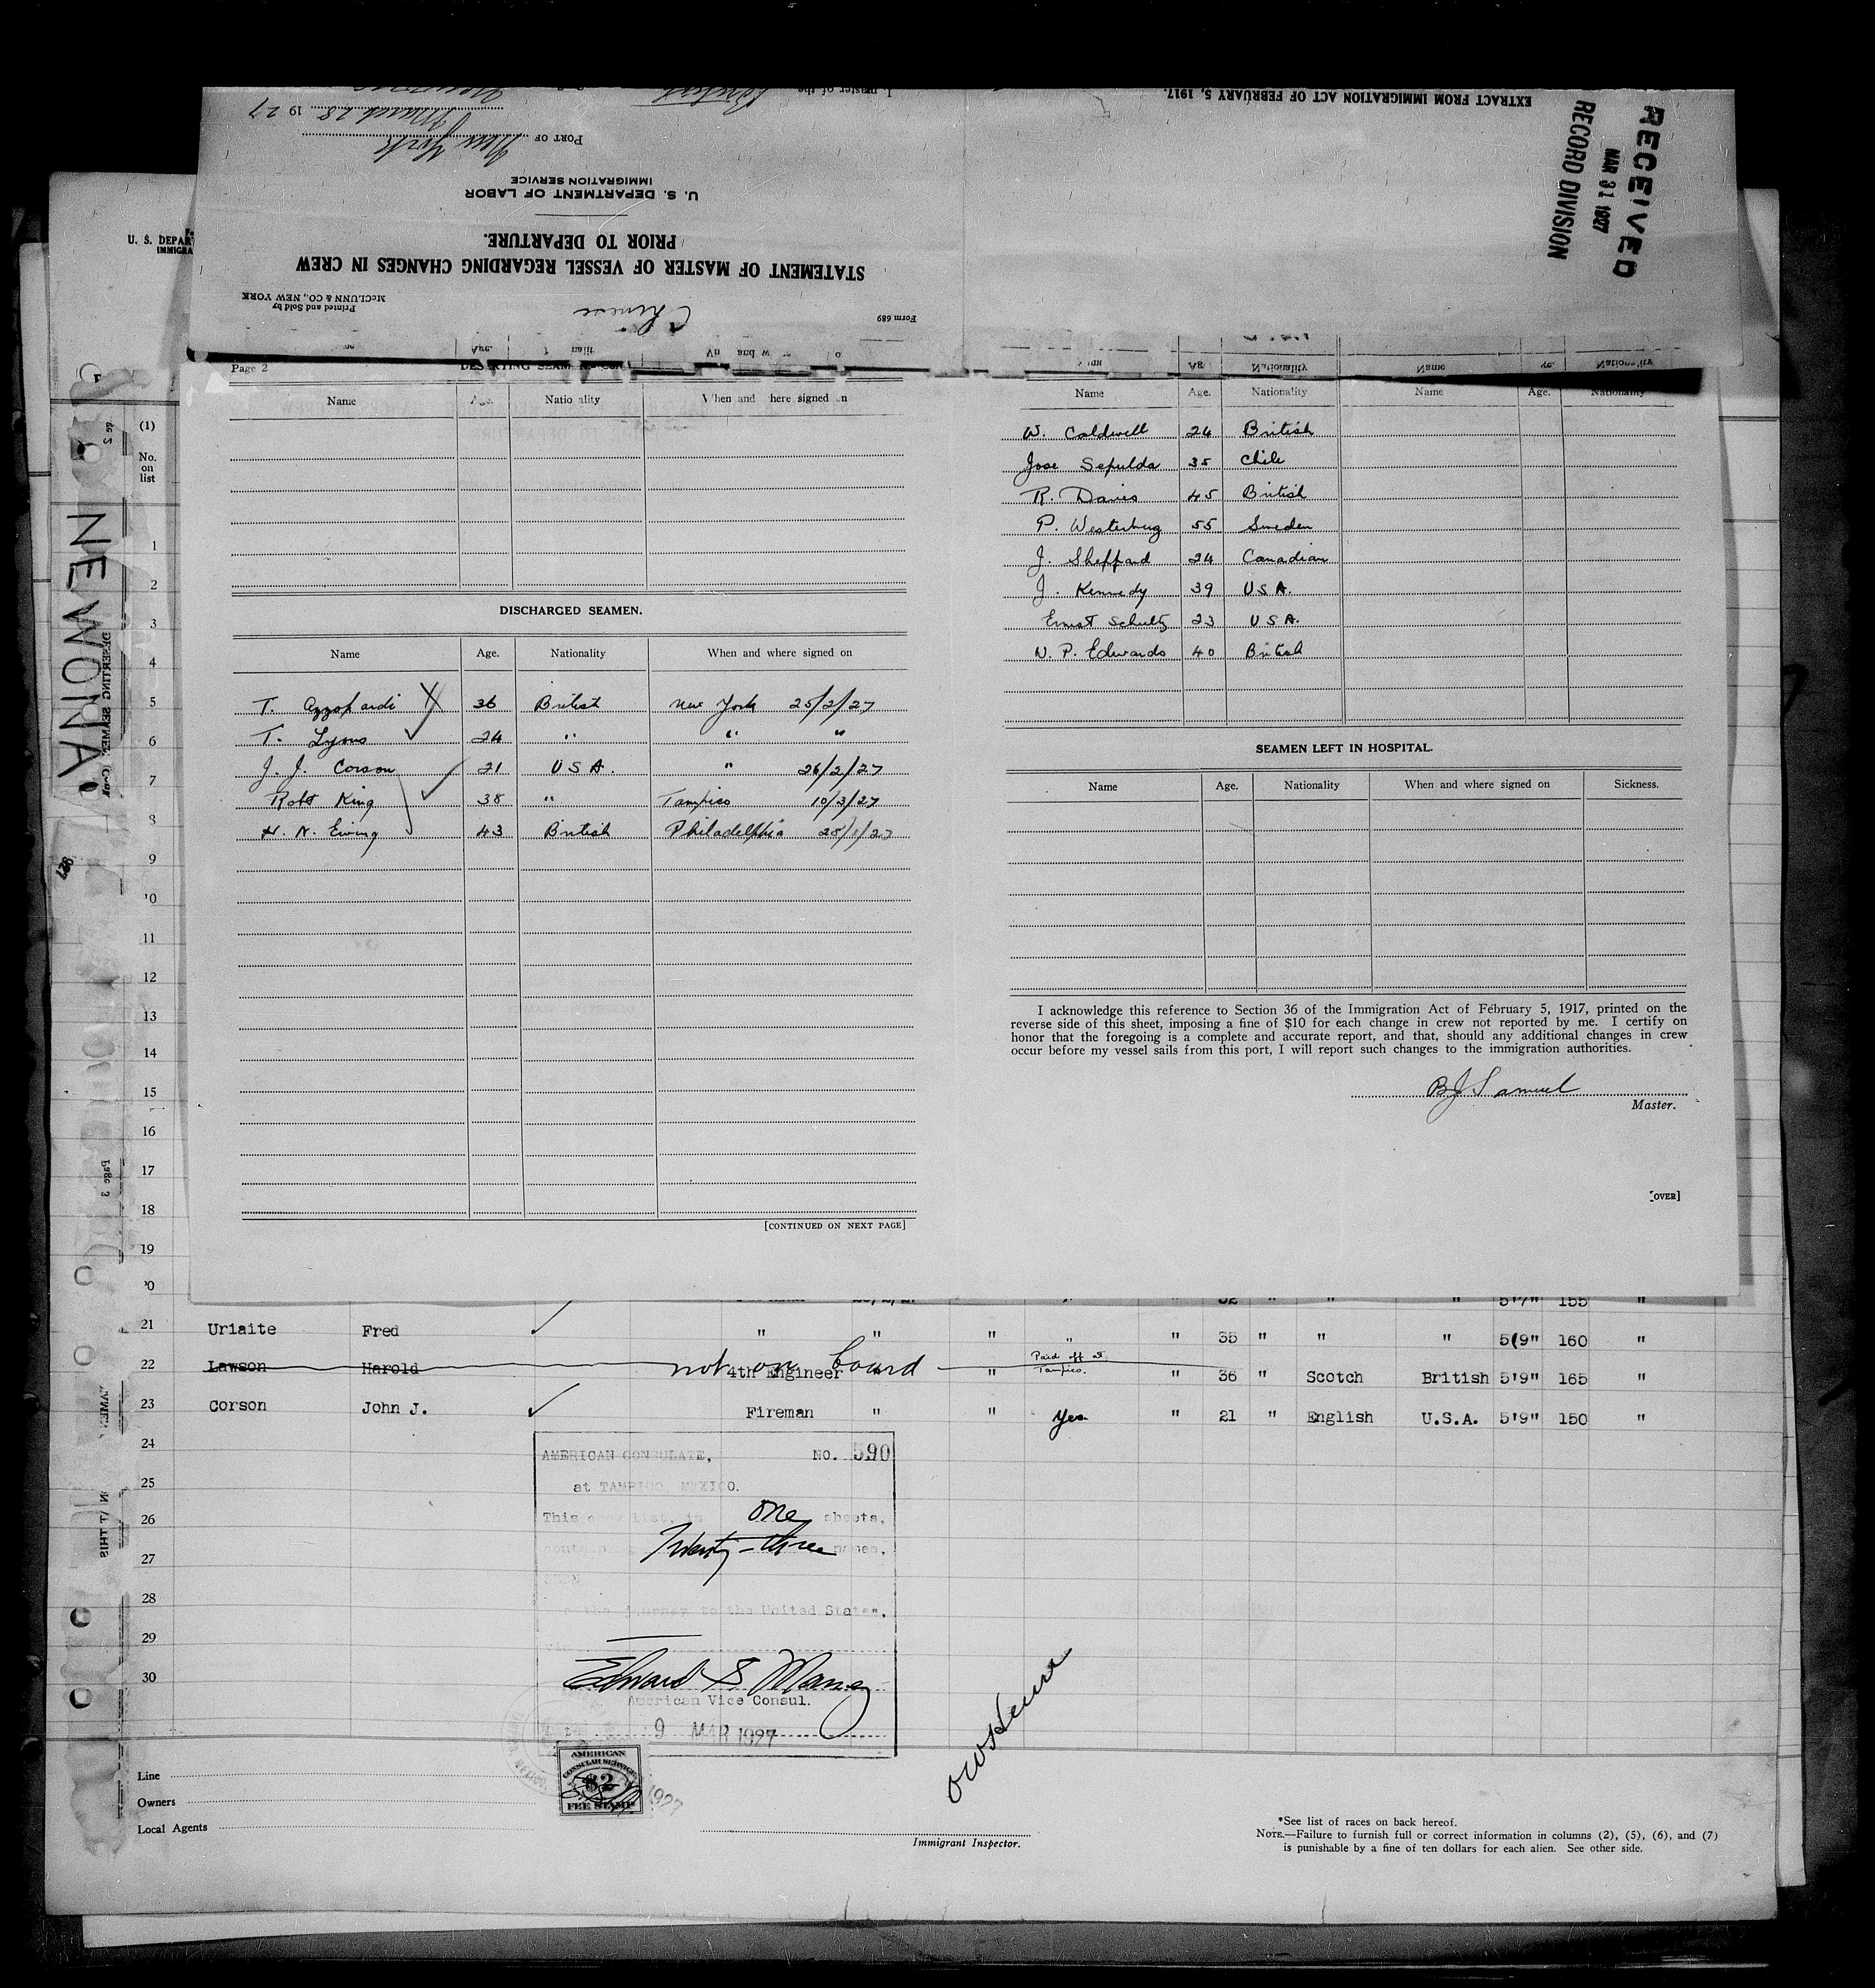 EXTRACT FROM IMMIGRATION ACT OF FEBRUARY 5, 1917.
RECEIVED
MAR 31 1927
RECORD DIVISION
I, master of the
March 28 1927
PORT OF New York
U. S. DEPARTMENT OF LABOR
IMMIGRATION SERVICE
STATEMENT OF MASTER OF VESSEL REGARDING CHANGES IN CREW
PRIOR TO DEPARTURE.
Printed and Sold by
McCLUNN & CO., NEW YORK
Form 689
Chinese
U. S. DEPAR
IMMIGRA
NEWONA
Page 2
Name Age. Nationality When and where signed on
DISCHARGED SEAMEN.
Name Age. Nationality When and where signed on
T. Azzopardi 36 British New York 25/2/27
T. Lyons 24 " " "
J. J. Corson 21 U S A. " 26/2/27
Robt King 38 " Tampico 10/3/27
H. N. Ewing 43 British Philadelphia 28/1/27
[CONTINUED ON NEXT PAGE]
Name Age. Nationality Name Age. Nationality
W. Caldwell 24 British
Jose Sepulda 35 Chile
R. Davis 45 British
P. Westerburg 55 Sweden
J. Sheppard 24 Canadian
J. Kennedy 39 U S A.
Ernst Schultz 23 U S A.
W. P. Edwards 40 British
SEAMEN LEFT IN HOSPITAL.
Name Age. Nationality When and where signed on Sickness.
I acknowledge this reference to Section 36 of the Immigration Act of February 5, 1917, printed on the
reverse side of this sheet, imposing a fine of $10 for each change in crew not reported by me. I certify on
honor that the foregoing is a complete and accurate report, and that, should any additional changes in crew
occur before my vessel sails from this port, I will report such changes to the immigration authorities.
B J Samuel
Master.
[OVER]
(1)
No.
on
list
1
2
3
4
5
6
7
8
9
10
11
12
13
14
15
16
17
18
19
20 32 " " " 5'7" 155 "
21 Uriaite Fred " " " " " 35 " " " 5'9" 160 "
22 Lawson Harold not on board 4th Engineer " " Paid off at Tampico. " 36 " Scotch British 5'9" 165 "
23 Corson John J. Fireman " " Yes " 21 " English U.S.A. 5'9" 150 "
24
25
26
27
28
29
30
AMERICAN CONSULATE, NO. 590
at TAMPICO, MEXICO.
This crew list, in one sheets,
containing Twenty-three names,
the journey to the United States,
Edward S Maney
American Vice Consul.
9 MAR 1927
AMERICAN
CONSULAR SERVICE
$2
FEE STAMP
1927
Line
Owners
Local Agents
Immigrant Inspector.
*See list of races on back hereof.
NOTE.—Failure to furnish full or correct information in columns (2), (5), (6), and (7)
is punishable by a fine of ten dollars for each alien. See other side.